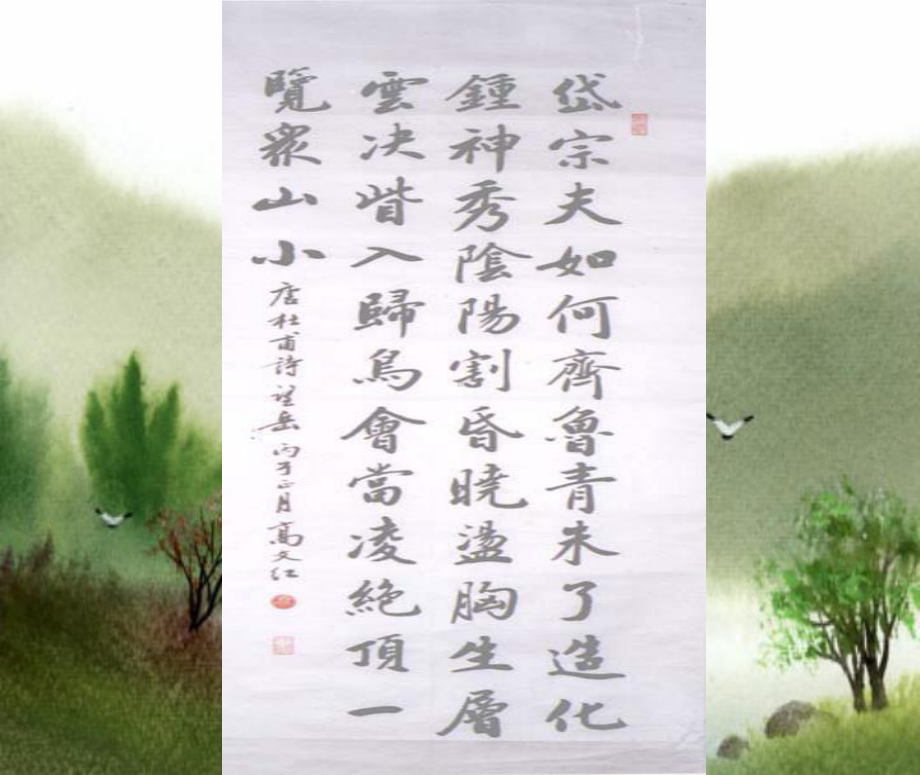 岱宗夫如何齊魯青未了造化
鍾神秀陰陽割昏曉盪胸生層
雲决眥入歸鳥會當凌絶頂一
覽衆山小唐杜甫詩望岳丙子正月高文红